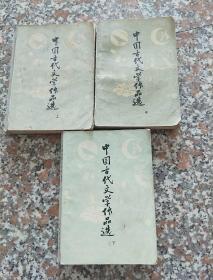 中国古代文学作品选
上
中国古代文学作品选
中国古代文学作品选
下